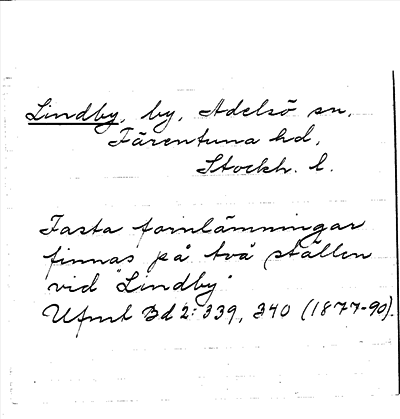 Lindby, by, Adelsö sn,
Färentuna hd,
Stockh. l.
Fasta fornlämningar
finnas på två ställen
vid "Lindby"
Ufmt Bd 2: 339, 340 (1877-90).